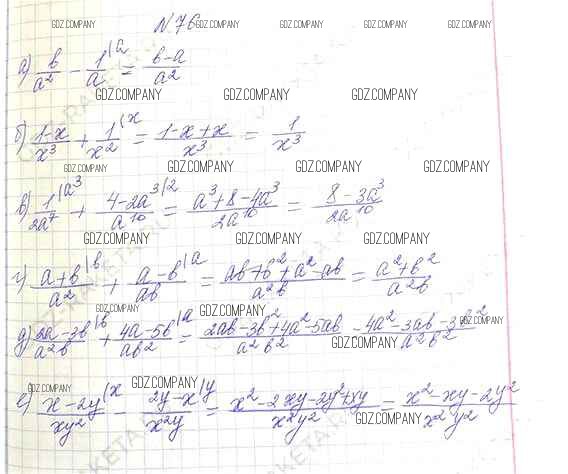 N 76
GDZ.COMPANY GDZ.COMPANY GDZ.COMPANY GDZ.COMPANY GDZ.COMPANY
а) b/a² - 1/a |a = b-a/a²
GDZ.COMPANY GDZ.COMPANY GDZ.COMPANY
б) 1-x/x³ + 1/x² |x = 1-x+x/x³ = 1/x³
GDZ.COMPANY GDZ.COMPANY GDZ.COMPANY GDZ.COMPANY
в) 1/2a⁷ |a³ + 4-2a³/a¹⁰ |2 = a³+8-4a³/2a¹⁰ = 8-3a³/2a¹⁰
GDZ.COMPANY GDZ.COMPANY GDZ.COMPANY
г) a+b/a² |b + a-b/ab |a = ab+b²+a²-ab/a²b = a²+b²/a²b
GDZ.COMPANY GDZ.COMPANY
д) 2a-3b/a²b |b + 4a-5b/ab² |a = 2ab-3b²+4a²-5ab/a²b² = 4a²-3ab-3b²/a²b²
GDZ.COMPANY GDZ.COMPANY
GDZ.COMPANY GDZ.COMPANY
е) x-2y/xy² |x - 2y-x/x²y |y = x²-2xy-2y²+xy/x²y² = x²-xy-2y²/x²y²
GDZ.COMPANY